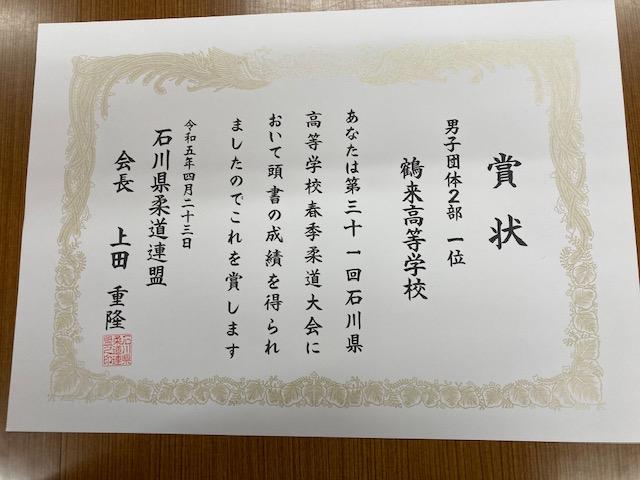 賞状
男子団体2部 一位
鶴来高等学校
あなたは第三十一回石川県
高等学校春季柔道大会に
おいて頭書の成績を得られ
ましたのでこれを賞します
令和五年四月二十三日
石川県柔道連盟
会長 上田 重隆
石川県
柔道連
盟之印